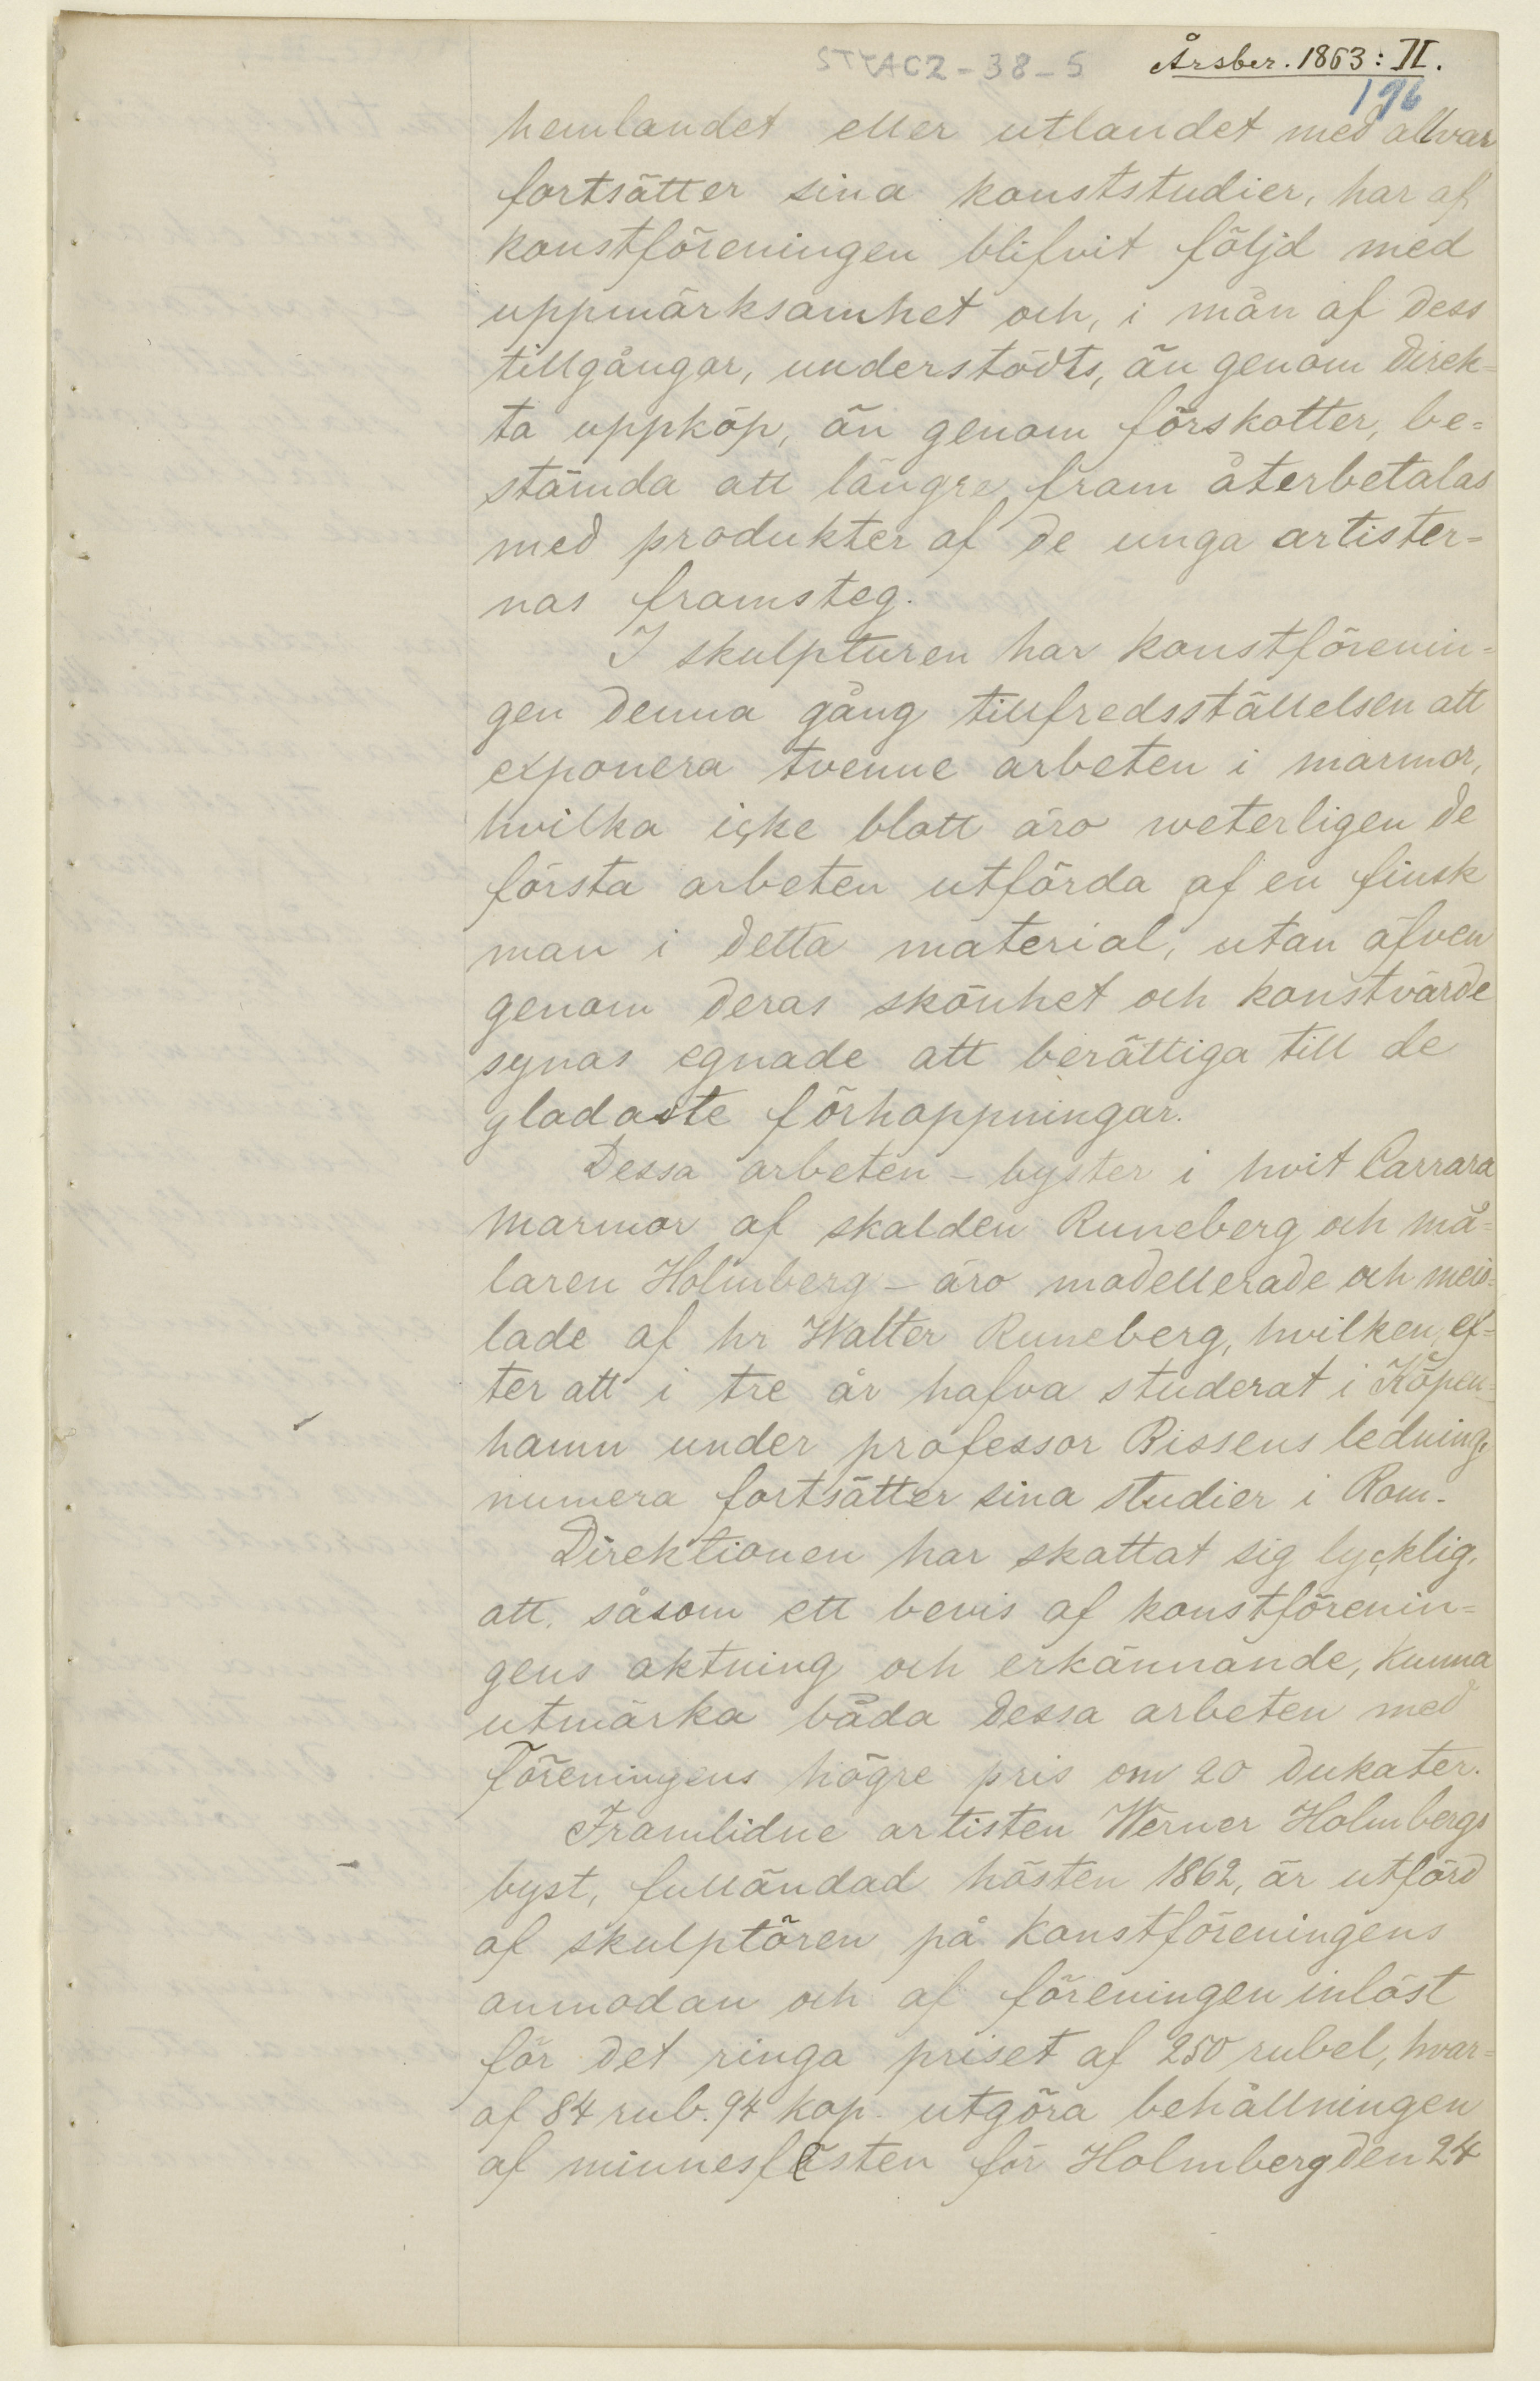 STYAC2-38-5 Årsber. 1863: II.
196
hemlandet eller utlandet med allvar
fortsätter sina konststudier, har af
konstföreningen blifvit följd med
uppmärksamhet och, i mån af dess
tillgångar, understödts, än genom direk=
ta uppköp, än genom förskotter, be=
stämda att längre fram återbetalas
med produkter af de unga artister=
nas framsteg.
I skulpturen har konstförenin=
gen denna gång tillfredsställelsen att
exponera tvenne arbeten i marmor,
hvilka icke blott äro weterligen de
första arbeten utförda af en finsk
man i detta material, utan äfven
genom deras skönhet och konstvärde
synas egnade att berättiga till de
gladaste förhoppningar.
Dessa arbeten – byster i hvit Carrara
marmor af skalden Runeberg och må=
laren Holmberg – äro modellerade och mejs=
lade af hr Walter Runeberg, hvilken, ef=
ter att i tre år hafva studerat i Köpen=
hamn under professor Bissens ledning,
numera fortsätter sina studier i Rom.
Direktionen har skattat sig lycklig,
att, såsom ett bevis af konstförenin=
gens aktning och erkännande, kunna
utmärka båda dessa arbeten med
Föreningens högre pris om 20 dukater.
Framlidne artisten Werner Holmbergs
byst, fulländad hösten 1862, är utförd
af skulptören på Konstföreningens
anmodan och af föreningen inlöst
för det ringa priset af 250 rubel, hvar=
af 84 rub. 94 kop. utgöra behållningen
af minnesfesten för Holmberg den 24